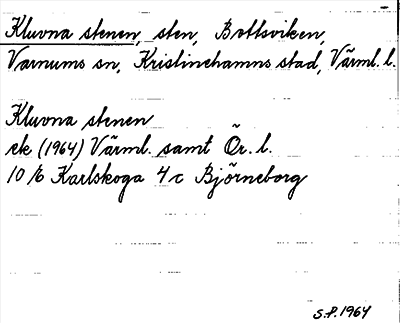 Kluvna stenen, sten, Bottsviken,
Varnums sn, Kristinehamns stad, Värml. l.
Kluvna stenen
ek (1964) Värml. samt Ör. l.
10 /6 Karlskoga 4 c Björneborg
S.P. 1964